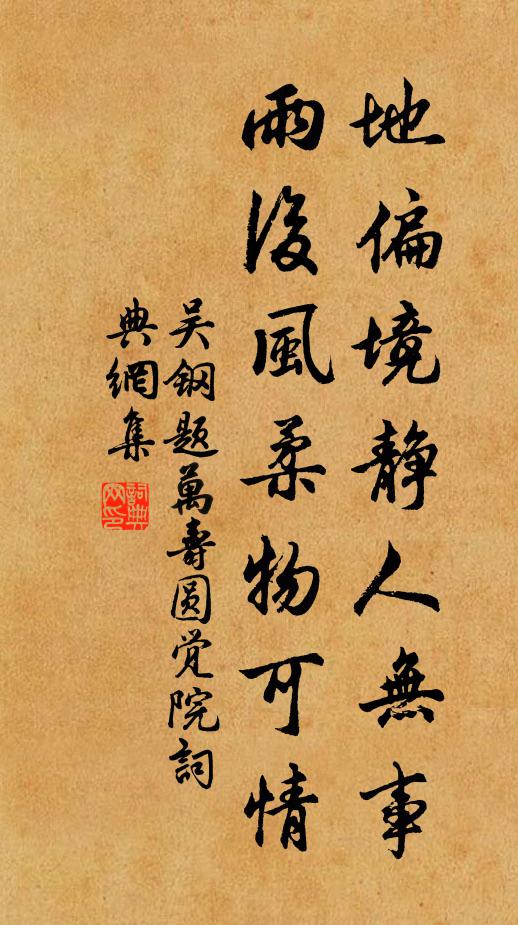 地偏境静人無事
雨後風柔物可情
吴鋼題萬壽圆觉院詞
典網集
詞典
网印